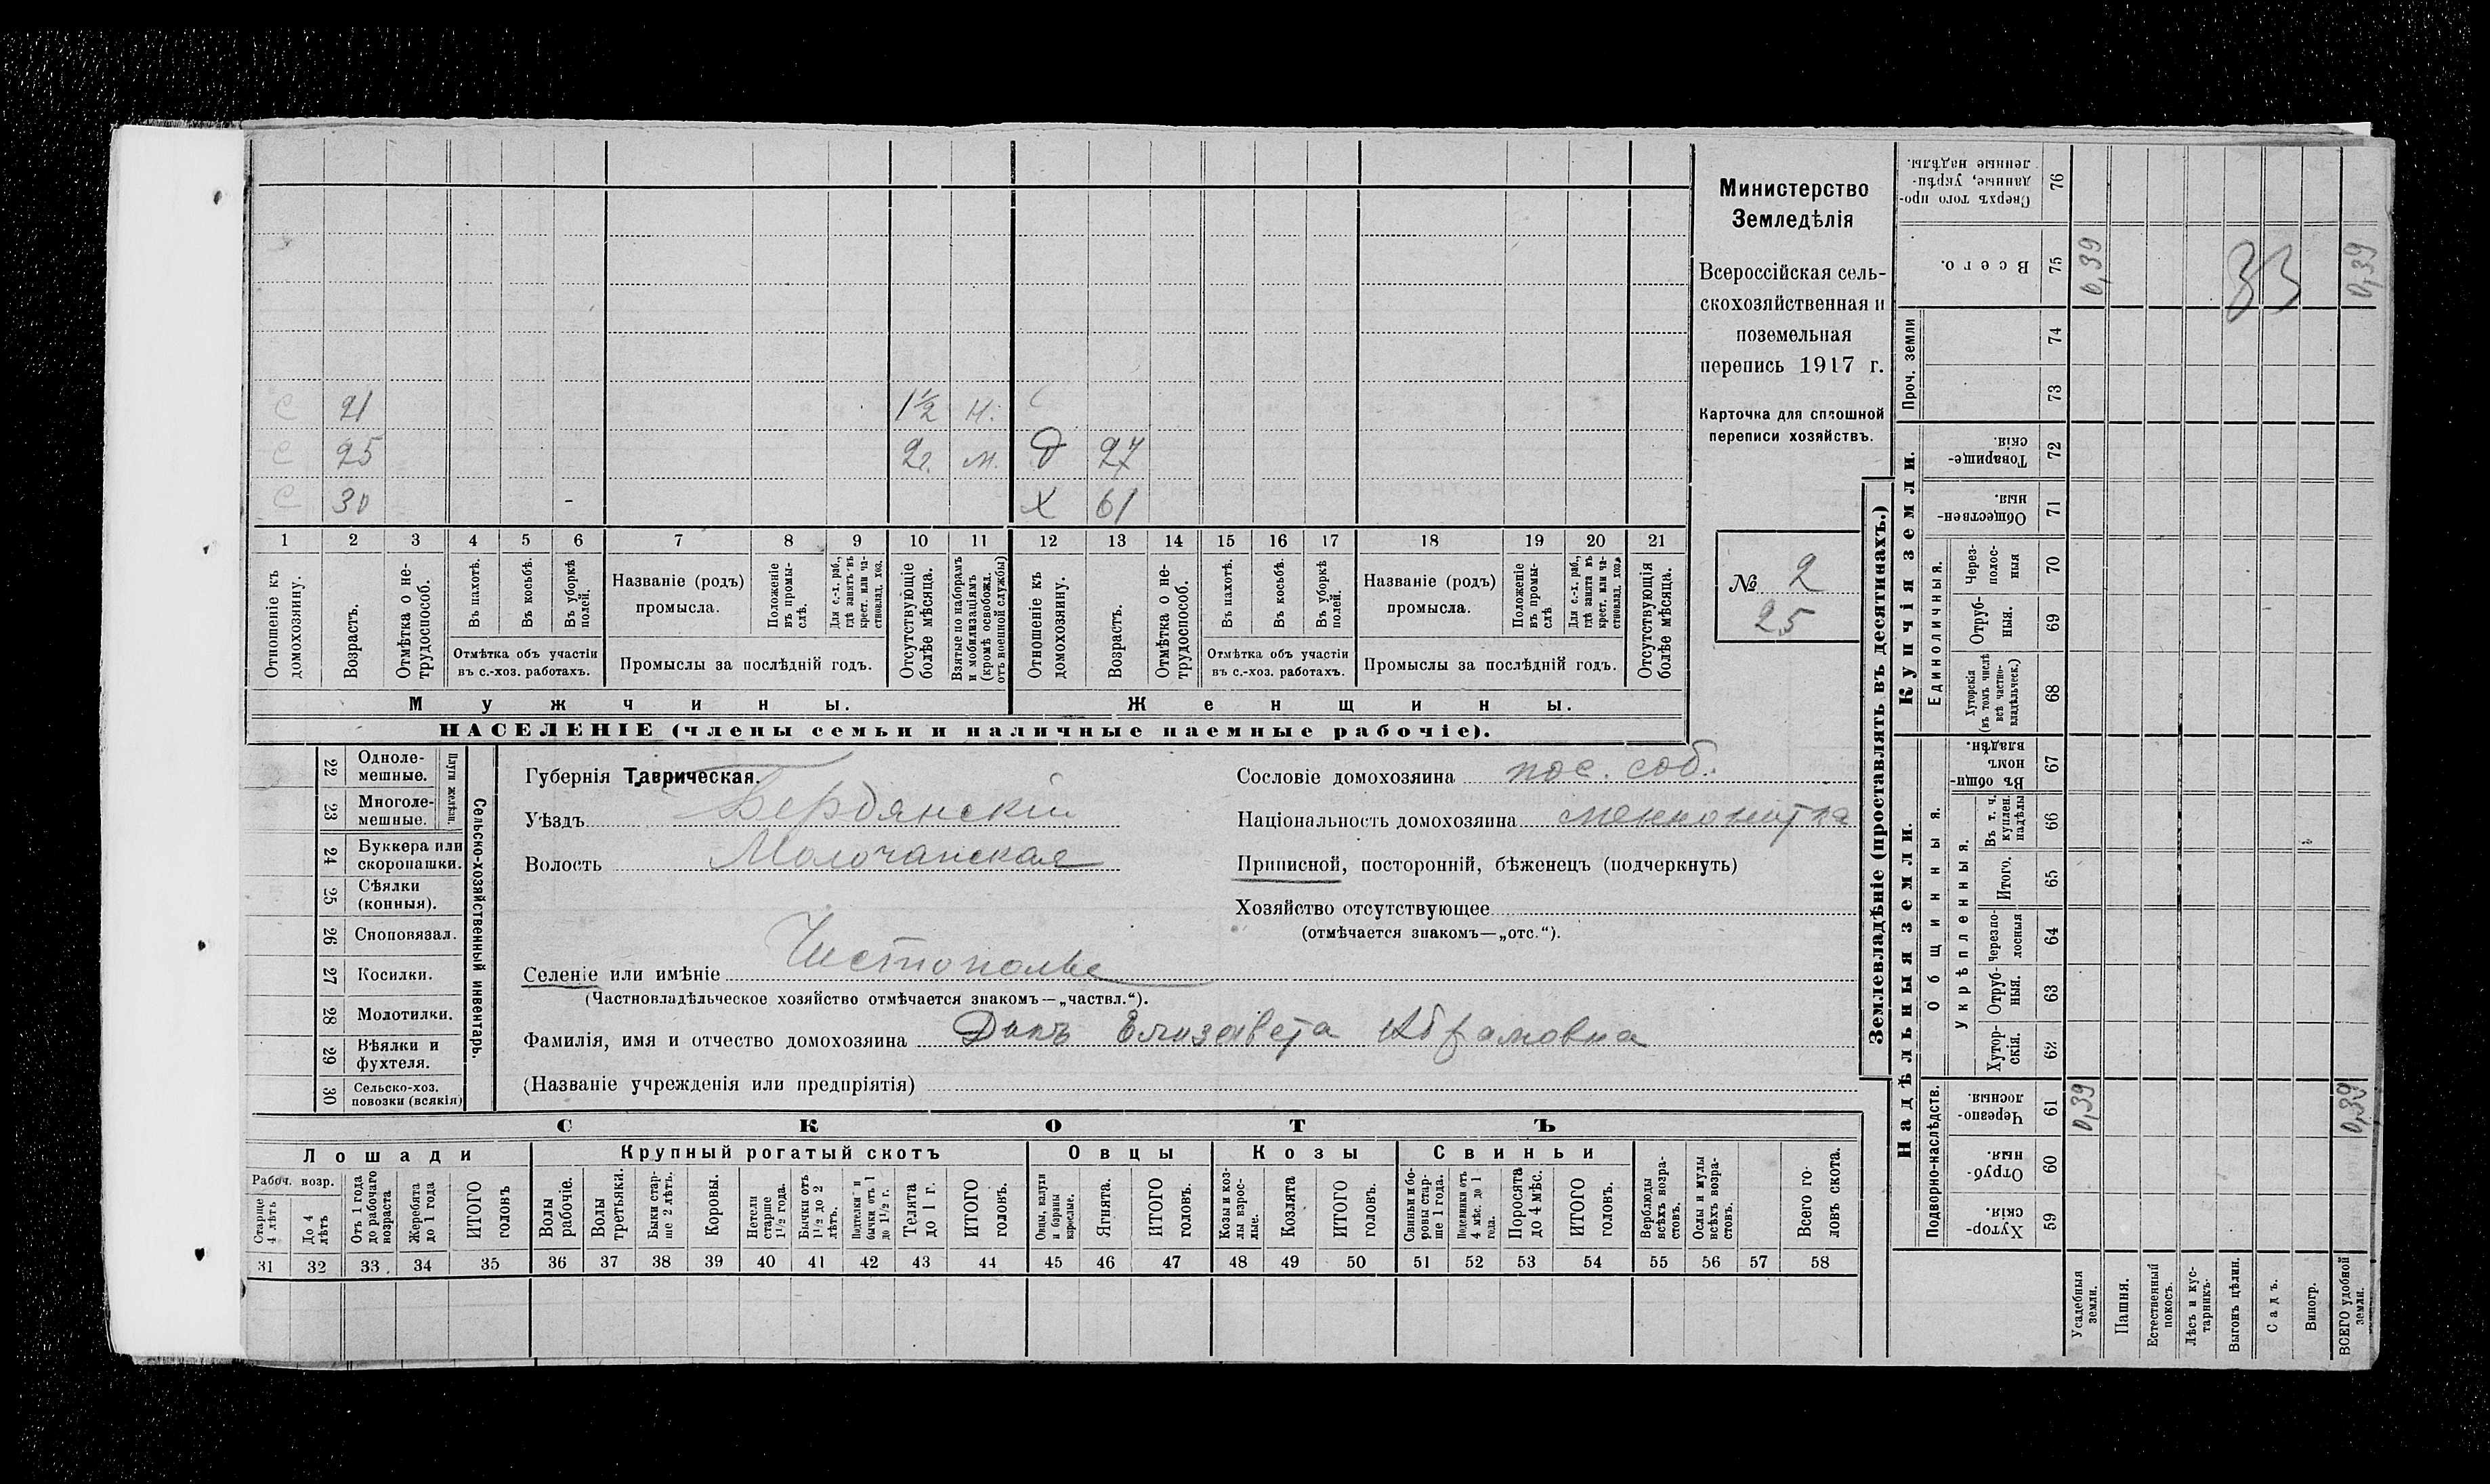 Министерство
Земледѣлія
Всероссійская сель-
скохозяйственная и
поземельная
перепись 1917 г.
Карточка для сплошной
переписи хозяйствъ.
№ 2
25
С 21 1½ н.
С 25 2 г. м. д 27
С 30 - Х 61
1 2 3 4 5 6 7 8 9 10 11 12 13 14 15 16 17 18 19 20 21
Отношеніе къ домохозяину.
Возрастъ.
Отмѣтка о не-трудоспособ.
Въ пахотѣ.
Въ косьбѣ.
Въ уборкѣ полей.
Отмѣтка объ участіи
въ с.-хоз. работахъ.
Названіе (родъ)
промысла.
Положеніе въ промы-слѣ.
Для с.-х. раб., гдѣ занятъ въ крест. или ча-стновлад. хоз.
Промыслы за послѣдній годъ.
Отсутствующіе болѣе мѣсяца.
Взятые по наборамъ и мобилизаціямъ (кромѣ освобожд. отъ военной службы)
Отношеніе къ домохозяину.
Возрастъ.
Отмѣтка о не-трудоспособ.
Въ пахотѣ.
Въ косьбѣ.
Въ уборкѣ полей.
Отмѣтка объ участіи
въ с.-хоз. работахъ.
Названіе (родъ)
промысла.
Положеніе въ промы-слѣ.
Для с.-х. раб., гдѣ занята въ крест. или ча-стновлад. хоз.
Промыслы за послѣдній годъ.
Отсутствующія болѣе мѣсяца.
Мужчины. Женщины.
НАСЕЛЕНІЕ (члены семьи и наличные наемные рабочіе).
22 Одноле-мешные.
23 Многоле-мешные.
Плуги желѣзн.
24 Буккера или скоропашки.
25 Сѣялки (конныя).
26 Сноповязал.
27 Косилки.
28 Молотилки.
29 Вѣялки и фухтеля.
30 Сельско-хоз. повозки (всякія)
Сельско-хозяйственный инвентарь.
Губернія Таврическая.
Уѣздъ Бердянскій
Волость Молочанская
Селеніе или имѣніе Чистополье
(Частновладѣльческое хозяйство отмѣчается знакомъ—„частвл.“).
Фамилія, имя и отчество домохозяина Дикъ Елизавета Абрамовна
(Названіе учрежденія или предпріятія)
Сословіе домохозяина пос. соб.
Національность домохозяина меннонитка
Приписной, посторонній, бѣженецъ (подчеркнуть)
Хозяйство отсутствующее
(отмѣчается знакомъ—„отс.“).
СКОТЪ
Лошади Крупный рогатый скотъ Овцы Козы Свиньи
Рабоч. возр.
Старше 4 лѣтъ
До 4 лѣтъ
Отъ 1 года до рабочаго возраста
Жеребята до 1 года
ИТОГО головъ
Волы рабочіе.
Волы третьяки.
Быки стар-ше 2 лѣтъ.
Коровы.
Нетели старше 1½ года.
Бычки отъ 1½ до 2 лѣтъ.
Подтелки и бычки отъ 1 до 1½ г.
Телята до 1 г.
ИТОГО головъ.
Овцы, валухи и бараны взрослые.
Ягнята.
ИТОГО головъ.
Козы и коз-лы взрос-лые.
Козлята
ИТОГО головъ.
Свиньи и бо-ровы стар-ше 1 года.
Подсвинки отъ 4 мѣс. до 1 года.
Поросята до 4 мѣс.
ИТОГО головъ.
Верблюды всѣхъ возра-стовъ.
Ослы и мулы всѣхъ возра-стовъ.
Всего го-ловъ скота.
31 32 33 34 35 36 37 38 39 40 41 42 43 44 45 46 47 48 49 50 51 52 53 54 55 56 57 58
Землевладѣніе (проставлять въ десятинахъ.)
Надѣльныя земли. Купчія земли. Проч. земли
Подворно-наслѣдств.
Общинныя.
Укрѣпленныя.
Единоличныя.
Сверхъ того про-данные, укрѣп-ленные надѣлы. 76
Всего. 75 0,39 33 0,39
74
73
Товарище-скія. 72
Обществен-ныя. 71
Через-полос-ныя 70
Отруб-ныя. 69
Хуторскія (въ томъ числѣ всѣ частно-владѣльческ.) 68
Въ общи-номъ владѣн. 67
Въ т. ч. куплен. надѣлы 66
Итого. 65
Черезпо-лосныя 64
Отруб-ныя. 63
Хутор-скія. 62
Черезпо-лосныя. 61 0,39 0,39
Отруб-ныя. 60
Хутор-скія. 59
Усадебныя земли.
Пашня.
Естественный покосъ.
Лѣсъ и кус-тарникъ.
Выгонъ цѣлин.
Садъ.
Виногр.
ВСЕГО удобной земли.